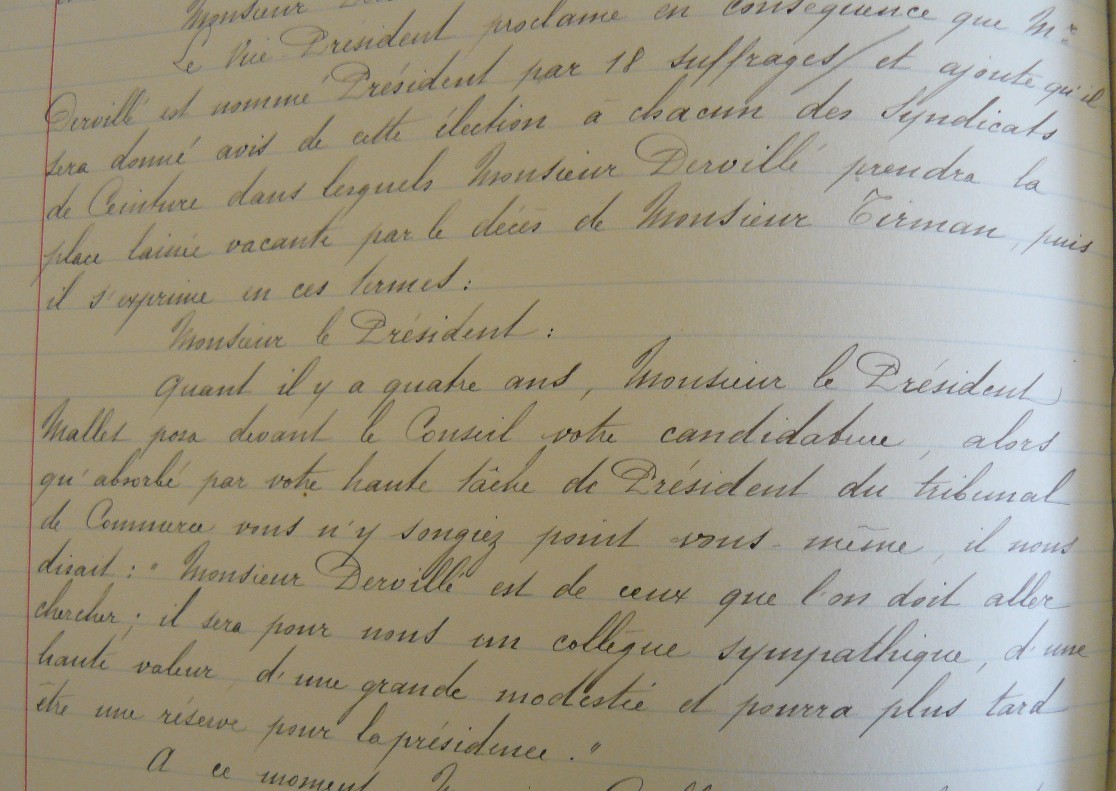 Monsieur
Le Vice Président proclame en conséquence que Mr
Dervillé est nommé Président par 18 suffrages/et ajoute qu'il
sera donné avis de cette élection à chacun des Syndicats
de Ceinture dans lesquels Monsieur Dervillé prendra la
place laissée vacante par le décès de Monsieur Tirman, puis
il s'exprime en ces termes :
Monsieur le Président :
Quant il y a quatre ans, Monsieur le Président
Mallet posa devant le Conseil votre candidature, alors
qu'absorbé par votre haute tâche de Président du tribunal
de Commerce vous n'y songiez point vous-même, il nous
disait : " Monsieur Dervillé est de ceux que l'on doit aller
chercher ; il sera pour nous un collègue sympathique, d'une
haute valeur, d'une grande modestie et pourra plus tard
être une réserve pour la présidence. "
A ce moment